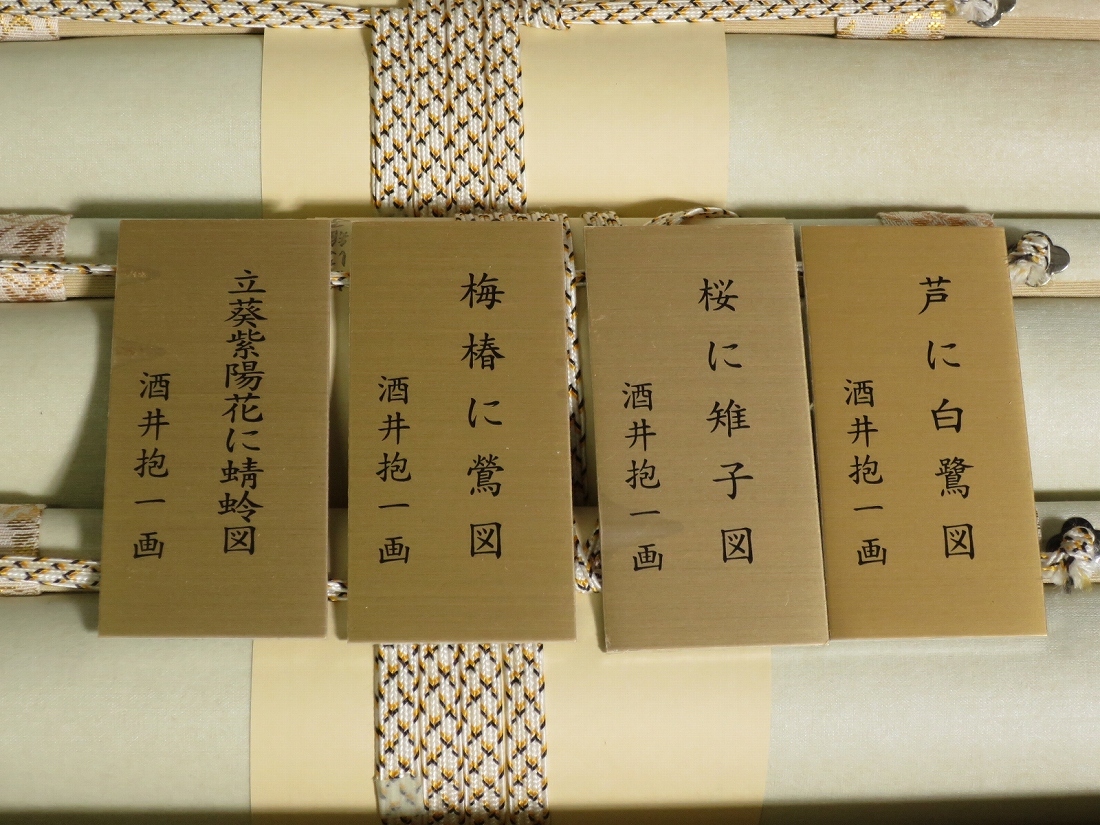 芦に白鷺図
酒井抱一画
桜に雉子図
酒井抱一画
梅椿に鶯図
酒井抱一画
立葵紫陽花に蜻蛉図
酒井抱一画